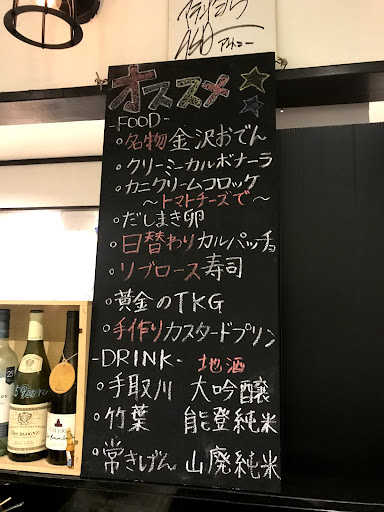 オススメ
-FOOD-
○名物金沢おでん
○クリーミーカルボナーラ
○カニクリームコロッケ
～トマトチーズで～
○だしまき卵
○日替わりカルパッチョ
○リブロース寿司
○黄金のTKG
○手作りカスタードプリン
-DRINK- 地酒
○手取川 大吟醸
○竹葉 能登純米
○常きげん 山廃純米